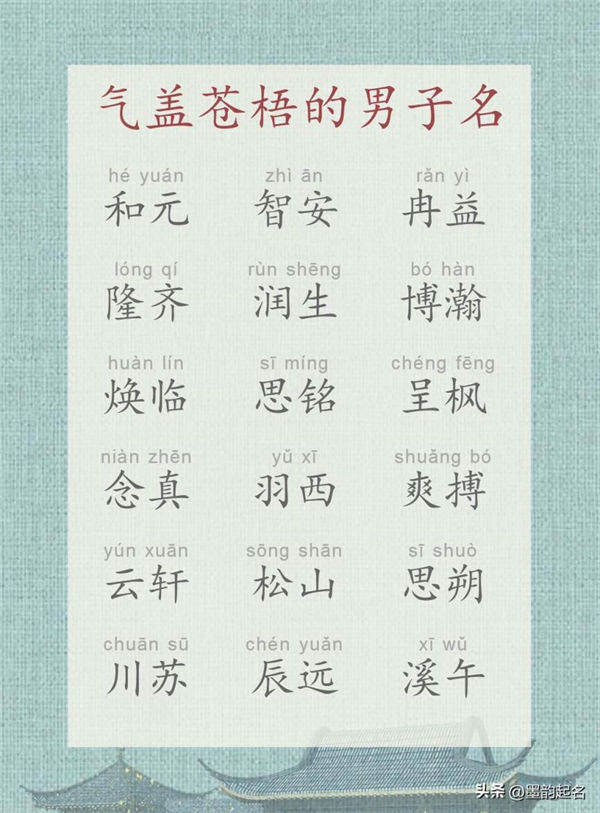 气盖苍梧的男子名
hé yuán zhì ān rǎn yì
和元 智安 冉益
lóng qí rùn shēng bó hàn
隆齐 润生 博瀚
huàn lín sī míng chéng fēng
焕临 思铭 呈枫
niàn zhēn yǔ xī shuǎng bó
念真 羽西 爽搏
yún xuān sōng shān sī shuò
云轩 松山 思朔
chuān sū chén yuǎn xī wǔ
川苏 辰远 溪午
头条 @墨韵起名